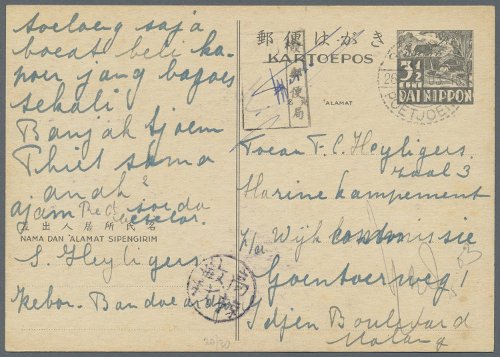 toeloeng saja
boeat beli ka-
poer jang bagoes
sekali
Banjak tjoem
Thiel sama
anak²
ajam Red soeda
besar.
差出人居所氏名
NAMA DAN ALAMAT SIPENGIRIM
S. Heyligers
Kebon. Bandoeard
郵便はがき
KARTOEPOS
ALAMAT
郵便局
3½
CENT
DAI NIPPON
POETJOE
Toean T. C. Heyligers.
zaal 3
Marine kampement
p/a Wijk commissie
Goentoerweg 1
Idjen Boulevard
Malang